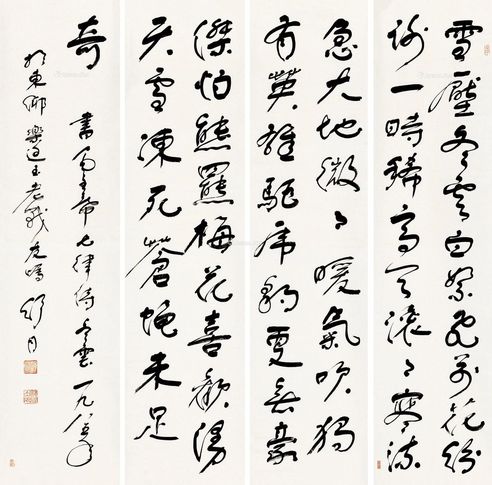 雪壓冬雲白絮飛萬花紛
謝一時稀高天滚々寒流
急大地微々暖氣吹獨
有英雄驅虎豹更無豪
傑怕熊羆梅花喜歡漫
天雪凍死蒼蠅未足
奇
書毛主席七律詩冬雲一九八年
於東鄉樂老戰友嘱舒同